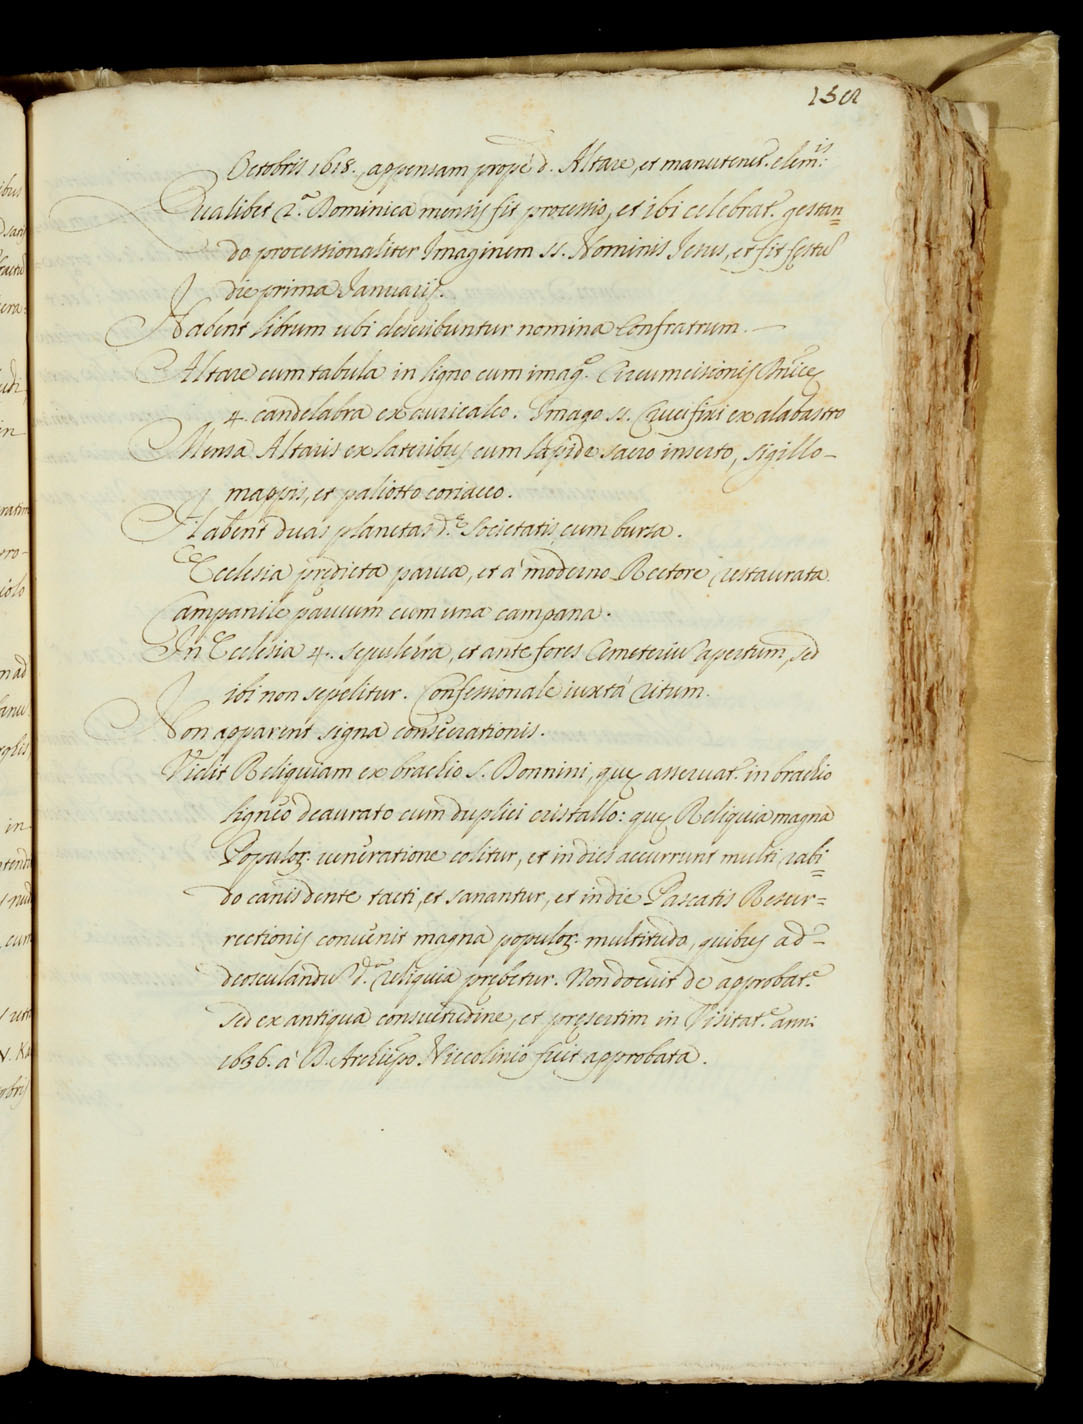 152
Octobris 1618. appensam propè d. Altare, et manutenet. elem:is
Qualibet 2.a Dominica mensis fit processio, et ibi celebrat. gestan=
do processionaliter Imaginem SS. Nominis Jesus, et fit festũ
die prima Januarij.
Habent librum ubi describuntur nomina Confratrum.
Altare cum tabula in ligno cum imag.e Circumcisionis
4. candelabra ex auricalco. Imago SS. Crucifixi ex alabastro
Mensa Altaris ex lateribus cum lapide sacro inserto, sigillo-
mappis, et paliotto coriaceo.
Habent duas planetas d.e Societatis cum bursa.
Ecclesia predicta parua, et à moderno Rectore restaurata
Campanile paruum cum una campana.
In Ecclesia 4. sepulcra, et ante fores Cemeteriũ apertum, sed
ibi non sepelitur. Confessionale iuxtà ritum.
Non apparent signa consecrationis.
Vidit Reliquiam ex brachio S. Donnini, quę asseruat. in brachio
ligneo deaurato cum duplici cristallo: quę Reliquia magna
Populoꝝ ueneratione colitur, et in dies accurrunt multi rabi=
do canis dente tacti, et sanantur, et in die Pascatis Resur=
rectionis conuenit magna populoꝝ multitudo, quibus ad-
deosculandũ d.a reliquia prebetur. Non docuit de approbat.e
sed ex antiqua consuetudine, et pręsertim in Visitat.e anni
1636. à D. Archiẽpo. Niccolinio fuit approbata.